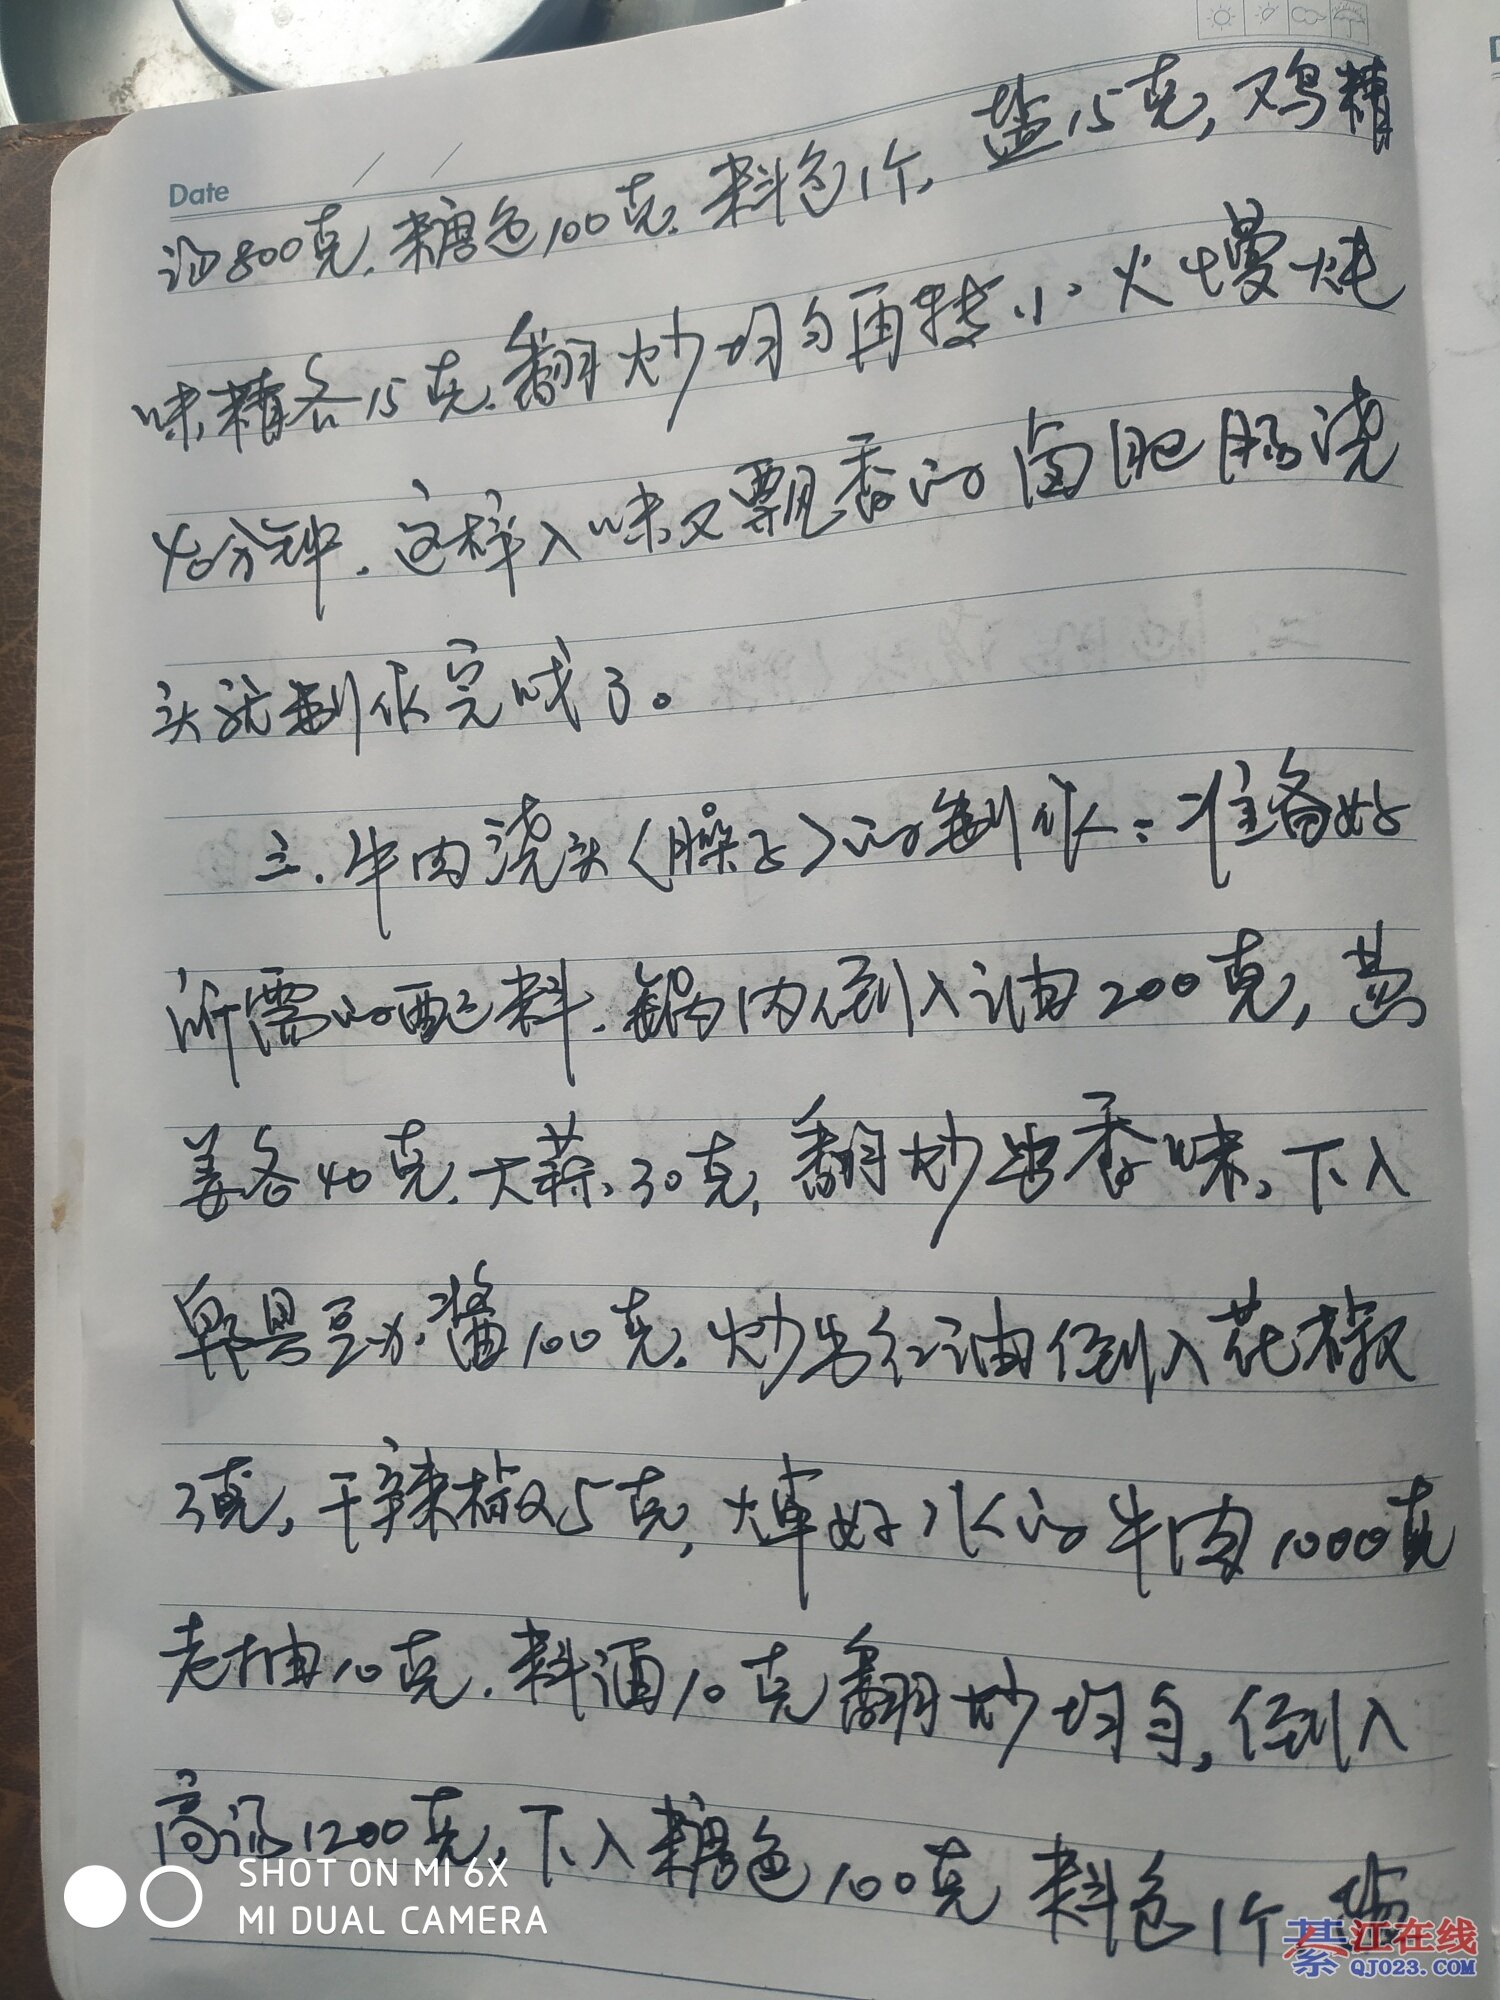 Date
汤800克.糖色100克.料包1个,盐15克,鸡精
味精各15克.翻炒均匀再转小火慢炖
40分钟.这样入味又飘香的卤肥肠浇
头就制作完成了。
三.牛肉浇头〈臊子〉的制作:准备好
所需的配料.锅内倒入油200克,葱
姜各40克.大蒜30克,翻炒出香味,下入
郫县豆瓣酱100克.炒出红油倒入花椒
3克,干辣椒5克,焯好水的牛肉1000克
老抽10克.料酒10克翻炒均匀,倒入
高汤1200克,下入糖色100克 料包1个 盐
SHOT ON MI 6X
MI DUAL CAMERA
綦江在线
QJ023.COM